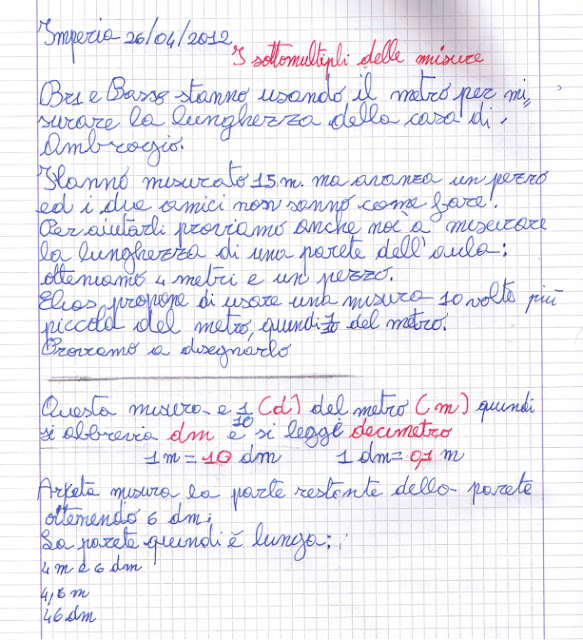 Imperia 26/04/2012
I sottomultipli delle misure
Bri e Basso stanno usando il metro per mi,,
surare la lunghezza della casa di
Ambrogio.
Hanno misurato 15 m. ma avanza un pezzo
ed i due amici non sanno come fare!
Per aiutarli proviamo anche noi a misurare
la lunghezza di una parete dell'aula:
otteniamo 4 metri e un pezzo.
Elias propone di usare una misura 10 volte più
piccola del metro, quindi 1/10 del metro.
Proviamo a disegnarlo
Questa misura e 1/10 (d) del metro (m) quindi
si abbrevia dm e si legge decimetro
1 m = 10 dm 1 dm = 0,1 m
misura la parte restante della parete
ottenendo 6 dm;
La parete quindi è lunga:
4 m e 6 dm
4,6 m
46 dm